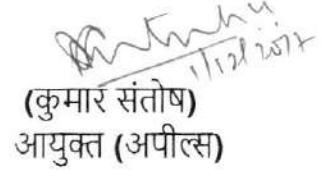 1/12/2017
(कुमार संतोष)
आयुक्त (अपील्स)